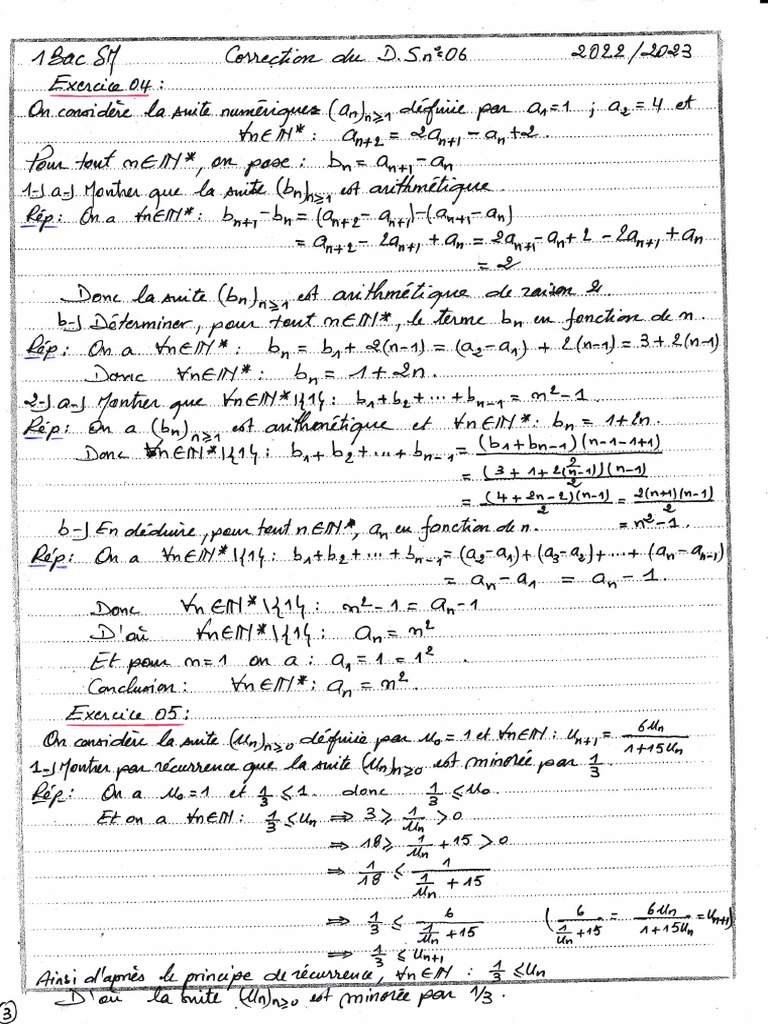 1 Bac SM Correction du D.S n°06 2022/2023
Exercice 04 :
On considère la suite numériques (a_n)_{n≥1} définie par a_1 = 1 ; a_2 = 4 et
∀n∈ℕ* : a_{n+2} = 2a_{n+1} - a_n + 2.
Pour tout n∈ℕ*, on pose : b_n = a_{n+1} - a_n
1-) a-) Montrer que la suite (b_n)_{n≥1} est arithmétique.
Rép : On a ∀n∈ℕ* : b_{n+1} - b_n = (a_{n+2} - a_{n+1}) - (a_{n+1} - a_n)
= a_{n+2} - 2a_{n+1} + a_n = 2a_{n+1} - a_n + 2 - 2a_{n+1} + a_n
= 2
Donc la suite (b_n)_{n≥1} est arithmétique de raison 2.
b-) Déterminer, pour tout n∈ℕ*, le terme b_n en fonction de n.
Rép : On a ∀n∈ℕ* : b_n = b_1 + 2(n-1) = (a_2 - a_1) + 2(n-1) = 3 + 2(n-1)
Donc ∀n∈ℕ* : b_n = 1 + 2n.
2-) a-) Montrer que ∀n∈ℕ*\{1} : b_1 + b_2 + ... + b_{n-1} = n² - 1.
Rép : On a (b_n)_{n≥1} est arithmétique et ∀n∈ℕ* : b_n = 1 + 2n.
Donc ∀n∈ℕ*\{1} : b_1 + b_2 + ... + b_{n-1} = (b_1 + b_{n-1})(n-1-1+1)/2
= (3 + 1 + 2(n-1))(n-1)/2
= (4 + 2n - 2)(n-1)/2 = 2(n+1)(n-1)/2
b-) En déduire, pour tout n∈ℕ*, a_n en fonction de n. = n² - 1.
Rép : On a ∀n∈ℕ*\{1} : b_1 + b_2 + ... + b_{n-1} = (a_2 - a_1) + (a_3 - a_2) + ... + (a_n - a_{n-1})
= a_n - a_1 = a_n - 1.
Donc ∀n∈ℕ*\{1} : n² - 1 = a_n - 1
D'où ∀n∈ℕ*\{1} : a_n = n²
Et pour n=1 on a : a_1 = 1 = 1².
Conclusion : ∀n∈ℕ* : a_n = n².
Exercice 05 :
On considère la suite (u_n)_{n≥0} définie par u_0 = 1 et ∀n∈ℕ : u_{n+1} = 6u_n/(1+15u_n)
1-) Montrer par récurrence que la suite (u_n)_{n≥0} est minorée par 1/3.
Rép : On a u_0 = 1 et 1/3 ≤ 1. donc 1/3 ≤ u_0.
Et on a ∀n∈ℕ : 1/3 ≤ u_n ⇒ 3 ≥ 1/u_n > 0
⇒ 18 ≥ 1/u_n + 15 > 0
⇒ 1/18 ≤ 1/(1/u_n + 15)
⇒ 1/3 ≤ 6/(1/u_n + 15) (6/(1/u_n + 15) = 6u_n/(1+15u_n) = u_{n+1})
⇒ 1/3 ≤ u_{n+1}
Ainsi d'après le principe de récurrence, ∀n∈ℕ : 1/3 ≤ u_n
D'où la suite (u_n)_{n≥0} est minorée par 1/3.
3